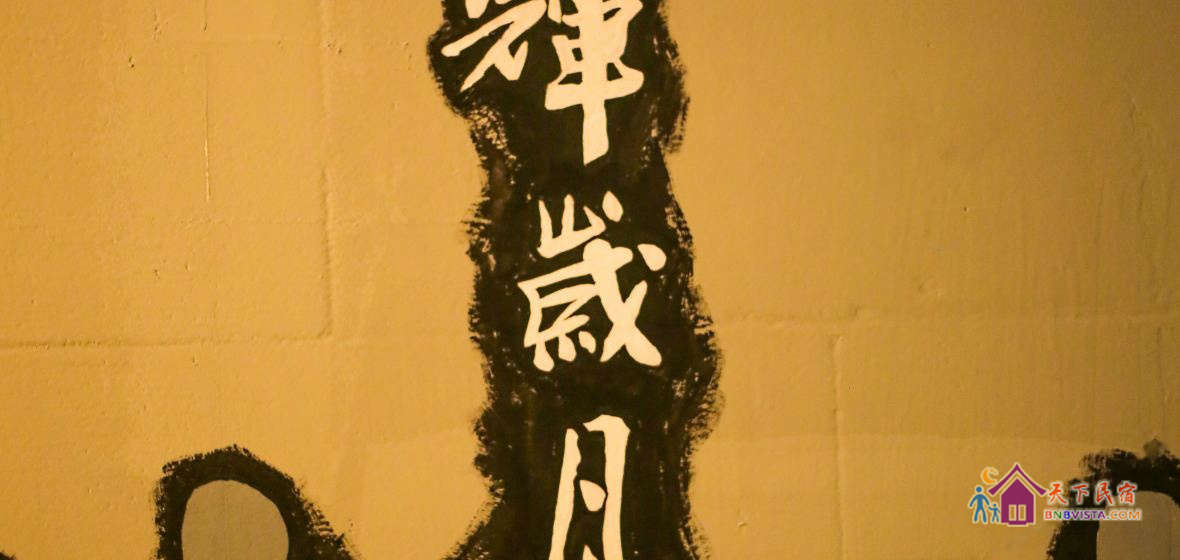 輝歲月
天下民宿
BNBVISTA.COM